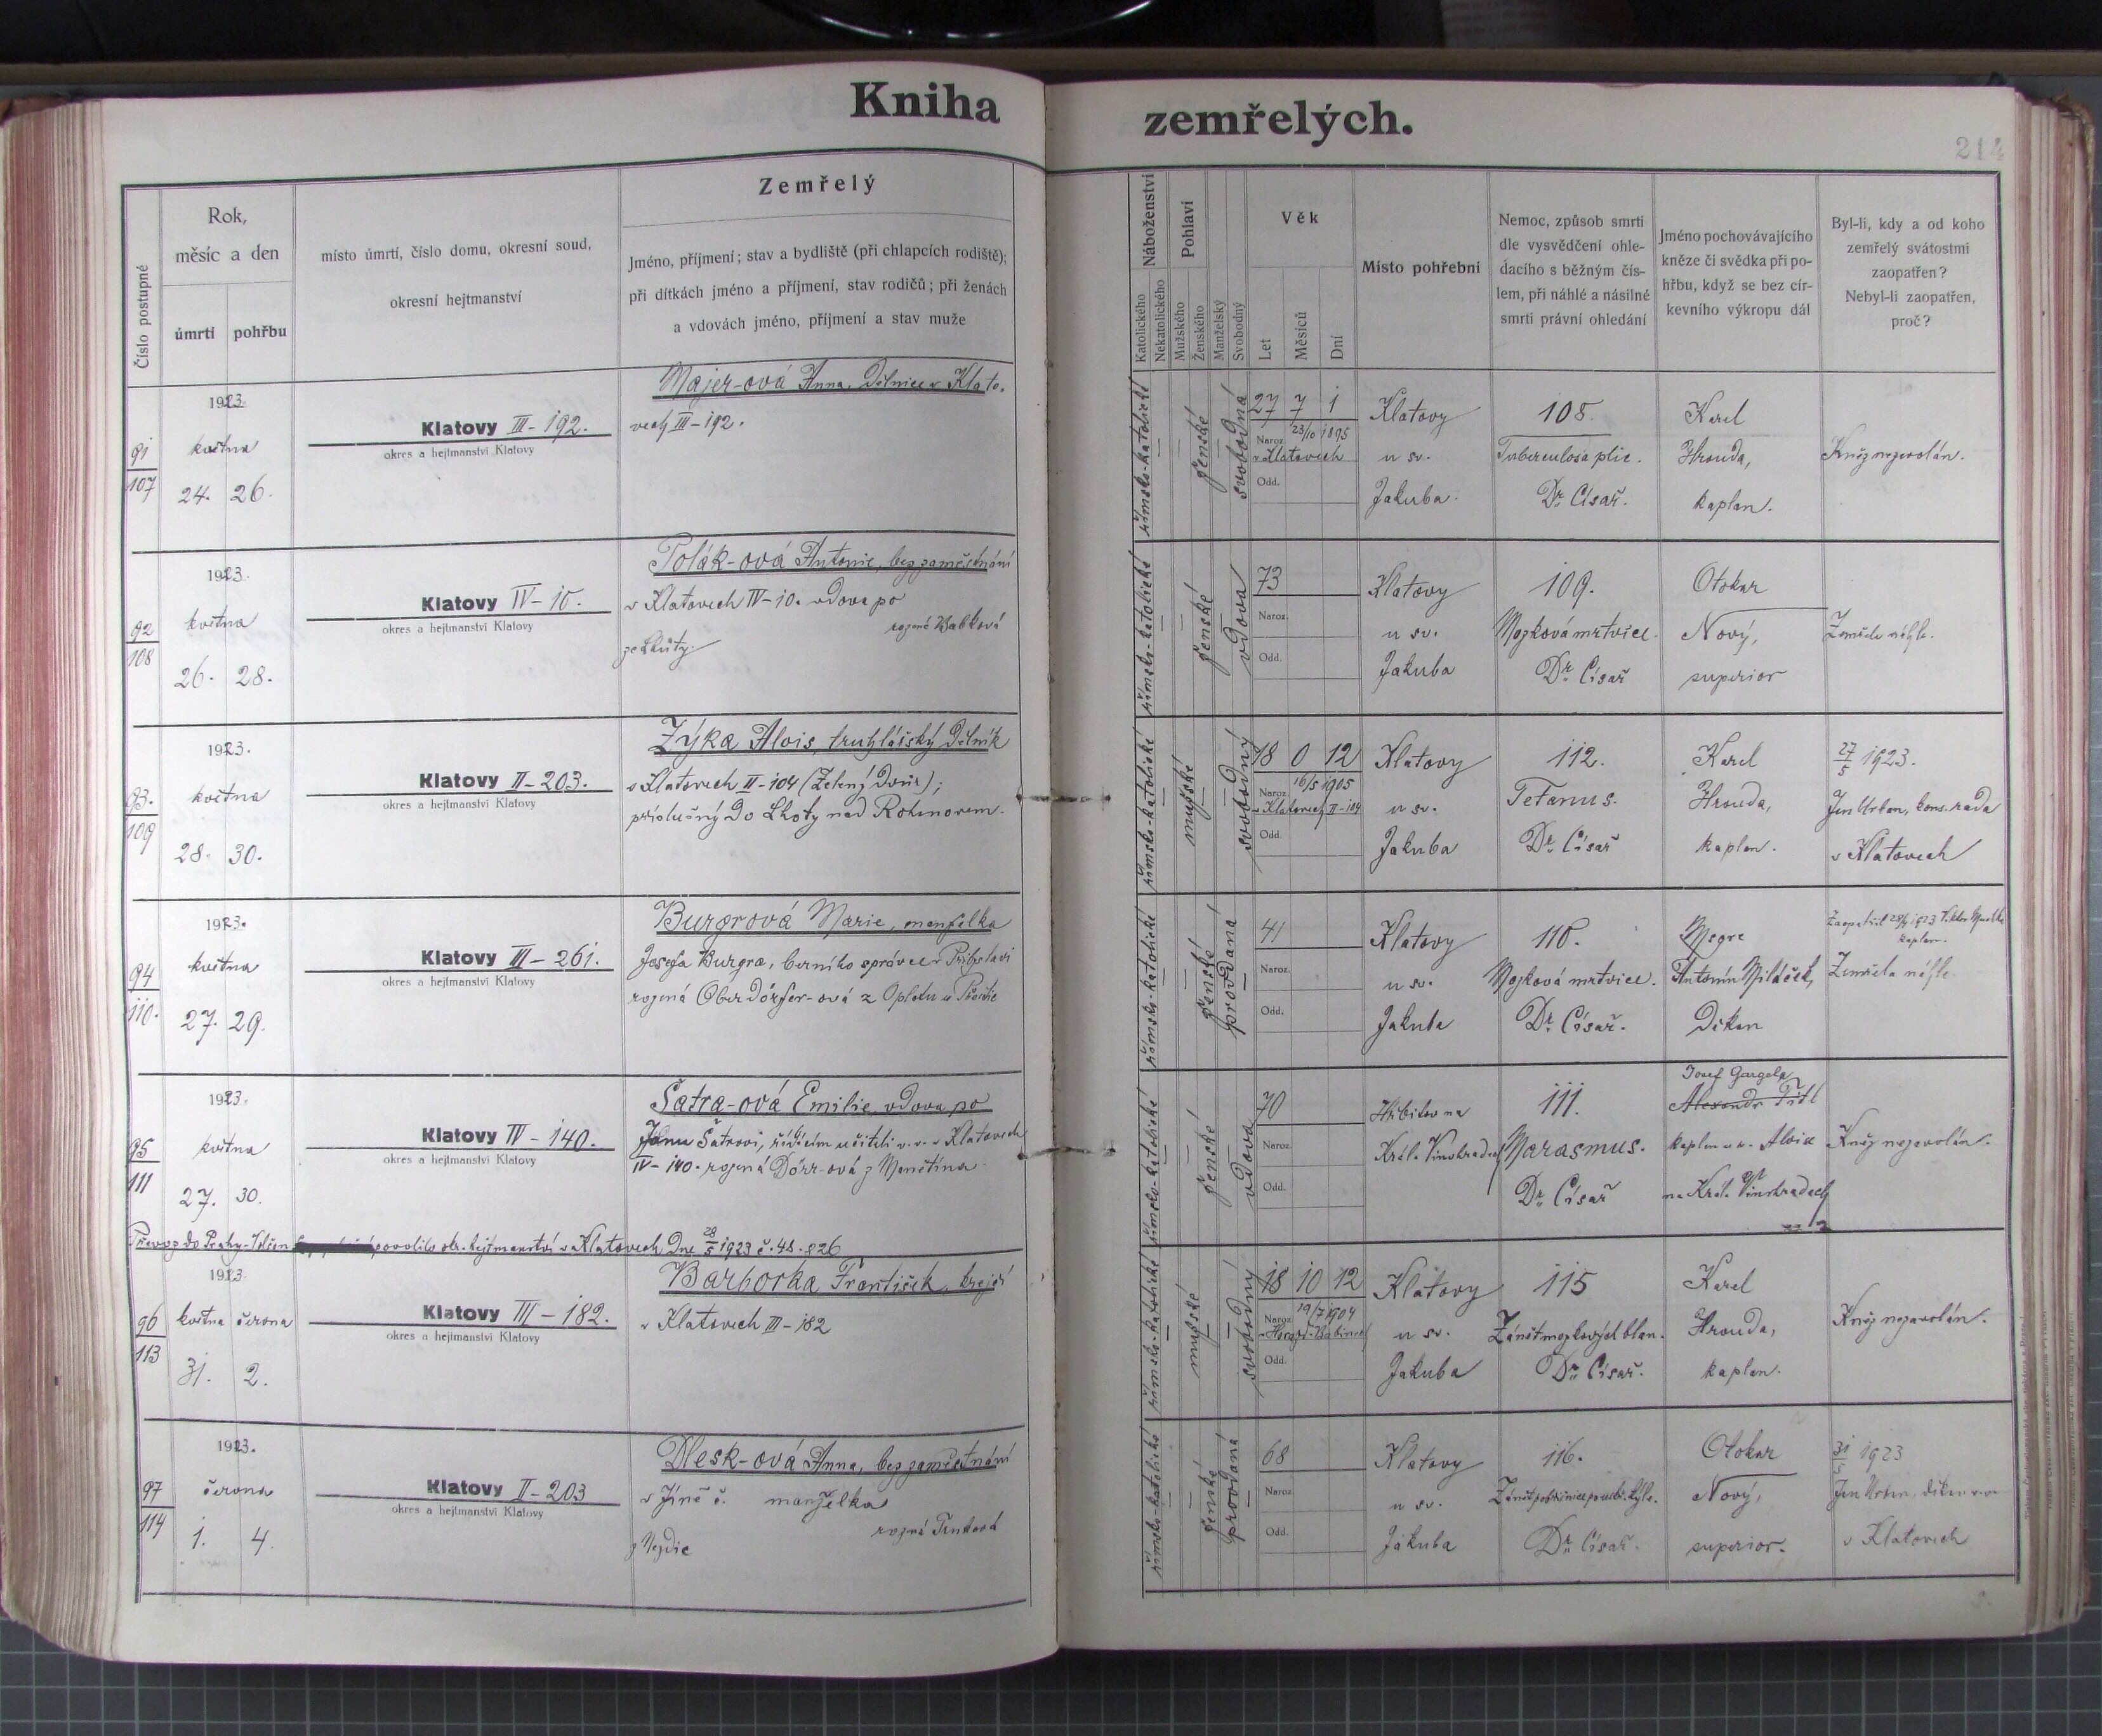 Kniha
zemřelých.
214
Číslo postupné
Rok,
měsíc a den
úmrtí
pohřbu
místo úmrtí, číslo domu, okresní soud,
okresní hejtmanství
Zemřelý
Jméno, příjmení; stav a bydliště (při chlapcích rodiště);
při dítkách jméno a příjmení, stav rodičů; při ženách
a vdovách jméno, příjmení a stav muže
Náboženství
Katolického
Nekatolického
Pohlaví
Mužského
Ženského
Manželský
Svobodný
Věk
Let
Měsíců
Dní
Místo pohřební
Nemoc, způsob smrti
dle vysvědčení ohle-
dacího s běžným čís-
lem, při náhlé a násilné
smrti právní ohledání
Jméno pochovávajícího
kněze či svědka při po-
hřbu, když se bez cír-
kevního výkropu dál
Byl-li, kdy a od koho
zemřelý svátostmi
zaopatřen?
Nebyl-li zaopatřen,
proč?
91
107
1923
května
24. 26.
Klatovy III-192.
okres a hejtmanství Klatovy
Majer-ová Anna, dělnice v Klato-
vech III-192.
římsko-katolické
ženské
svobodná
27 7 1
Naroz. 23/10 1895
v Klatovech
Odd.
Klatovy
u sv.
Jakuba
108.
Tuberculosa plic.
Dr. Císař.
Karel
Hrouda,
kaplan.
Kněz nezavolán.
92
108
1923.
května
26. 28.
Klatovy IV-10.
okres a hejtmanství Klatovy
Polák-ová Antonie, bez zaměstnání
v Klatovech IV-10. vdova po
rozená
ze Lhůty
římsko-katolické
ženské
vdova
73
Naroz.
Odd.
Klatovy
u sv.
Jakuba
109.
Mozková mrtvice.
Dr. Císař
Otokar
Nový,
superior
Zemřela náhle.
93.
109
1923.
května
28. 30.
Klatovy II-203.
okres a hejtmanství Klatovy
Zýka Alois, truhlářský dělník
v Klatovech II-104 (Zelený Dvůr);
příslušný do Lhoty nad Rohanovem.
římsko-katolické
mužské
svobodný
18 0 12
Naroz. 16/5 1905
v Klatovech II-104
Odd.
Klatovy
u sv.
Jakuba
112.
Tetanus.
Dr. Císař
Karel
Hrouda,
kaplan.
27/5 1923.
Jan Urban, kons. rada
v Klatovech
94
110.
1923.
května
27. 29.
Klatovy III-261.
okres a hejtmanství Klatovy
Burgrová Marie, manželka
Josefa Burgra, berního správce v
rozená Oberdörfer-ová z
římsko-katolické
ženské
provdaná
41
Naroz.
Odd.
Klatovy
u sv.
Jakuba
110.
Mozková mrtvice.
Dr. Císař.
Msgre
Antonín
Děkan
Zaopatřil 1923
kaplan.
Zemřela náhle.
95
111
1923.
května
27. 30.
Klatovy IV-140.
okres a hejtmanství Klatovy
Šatra-ová Emilie, vdova po
Janu Šatrovi, řídícím učiteli v. v. v Klatovech
IV-140. rozená Dörr-ová z Manětína.
římsko-katolické
ženské
vdova
70
Naroz.
Odd.
Hřbitov na
Král. Vinohradech
111.
Marasmus.
Dr. Císař
Josef Gargela
Alexandr Titl
kaplan u sv. Aloisa
na Král. Vinohradech
Kněz nezavolán.
Převoz do Prahy- povolilo okr. hejtmanství v Klatovech dne 28/5 1923 č. 48.826
96
113
1923
května června
31. 2.
Klatovy III-182.
okres a hejtmanství Klatovy
Barborka František, krejčí
v Klatovech III-182
římsko-katolické
mužské
svobodný
18 10 12
Naroz. 19/7 1904
Odd.
Klatovy
u sv.
Jakuba
115
Zánět mozkových blan.
Dr. Císař.
Karel
Hrouda,
kaplan.
Kněz nezavolán.
97
114
1923.
června
1. 4.
Klatovy II-203
okres a hejtmanství Klatovy
Dlesk-ová Anna, bez zaměstnání
v Jíně č. manželka
rozená Trnková
z
římsko-katolické
ženské
provdaná
68
Naroz
Odd.
Klatovy
u sv.
Jakuba
116.
Dr. Císař.
Otokar
Nový,
superior.
31/5 1923
Jan Urban,
v Klatovech